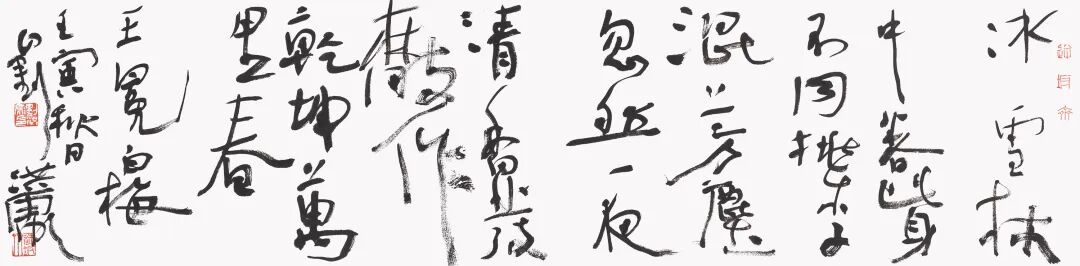 冰雪林
中著此身
不同桃李
混芳塵
忽然一夜
清香發
散作
乾坤萬
里春
王冕白梅
壬寅秋日